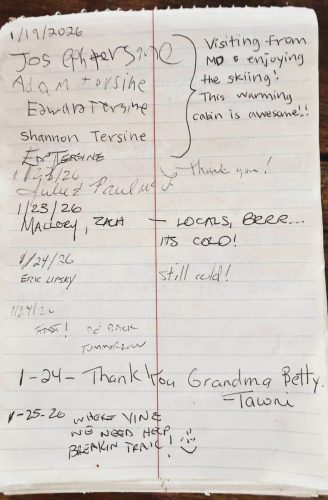 1/19/2026
Joseph Tersine
Adam Tersine
Edward Tersine
Shannon Tersine
Em Tersine
Visiting from
MD & enjoying
the skiing!
This warming
cabin is awesome!!
1/23/26
Julie & Paul
Thank you!
1/23/26
Mallory, Zach — Locals, Brrr...
its cold!
1/24/26
Eric Lipsky
Still cold!
1/24/26
Fast! Be back
tomorrow
1-24- Thank You Grandma Betty.
-Tawni
1-25-26 Where Vine
We need help
Breakin Trail!